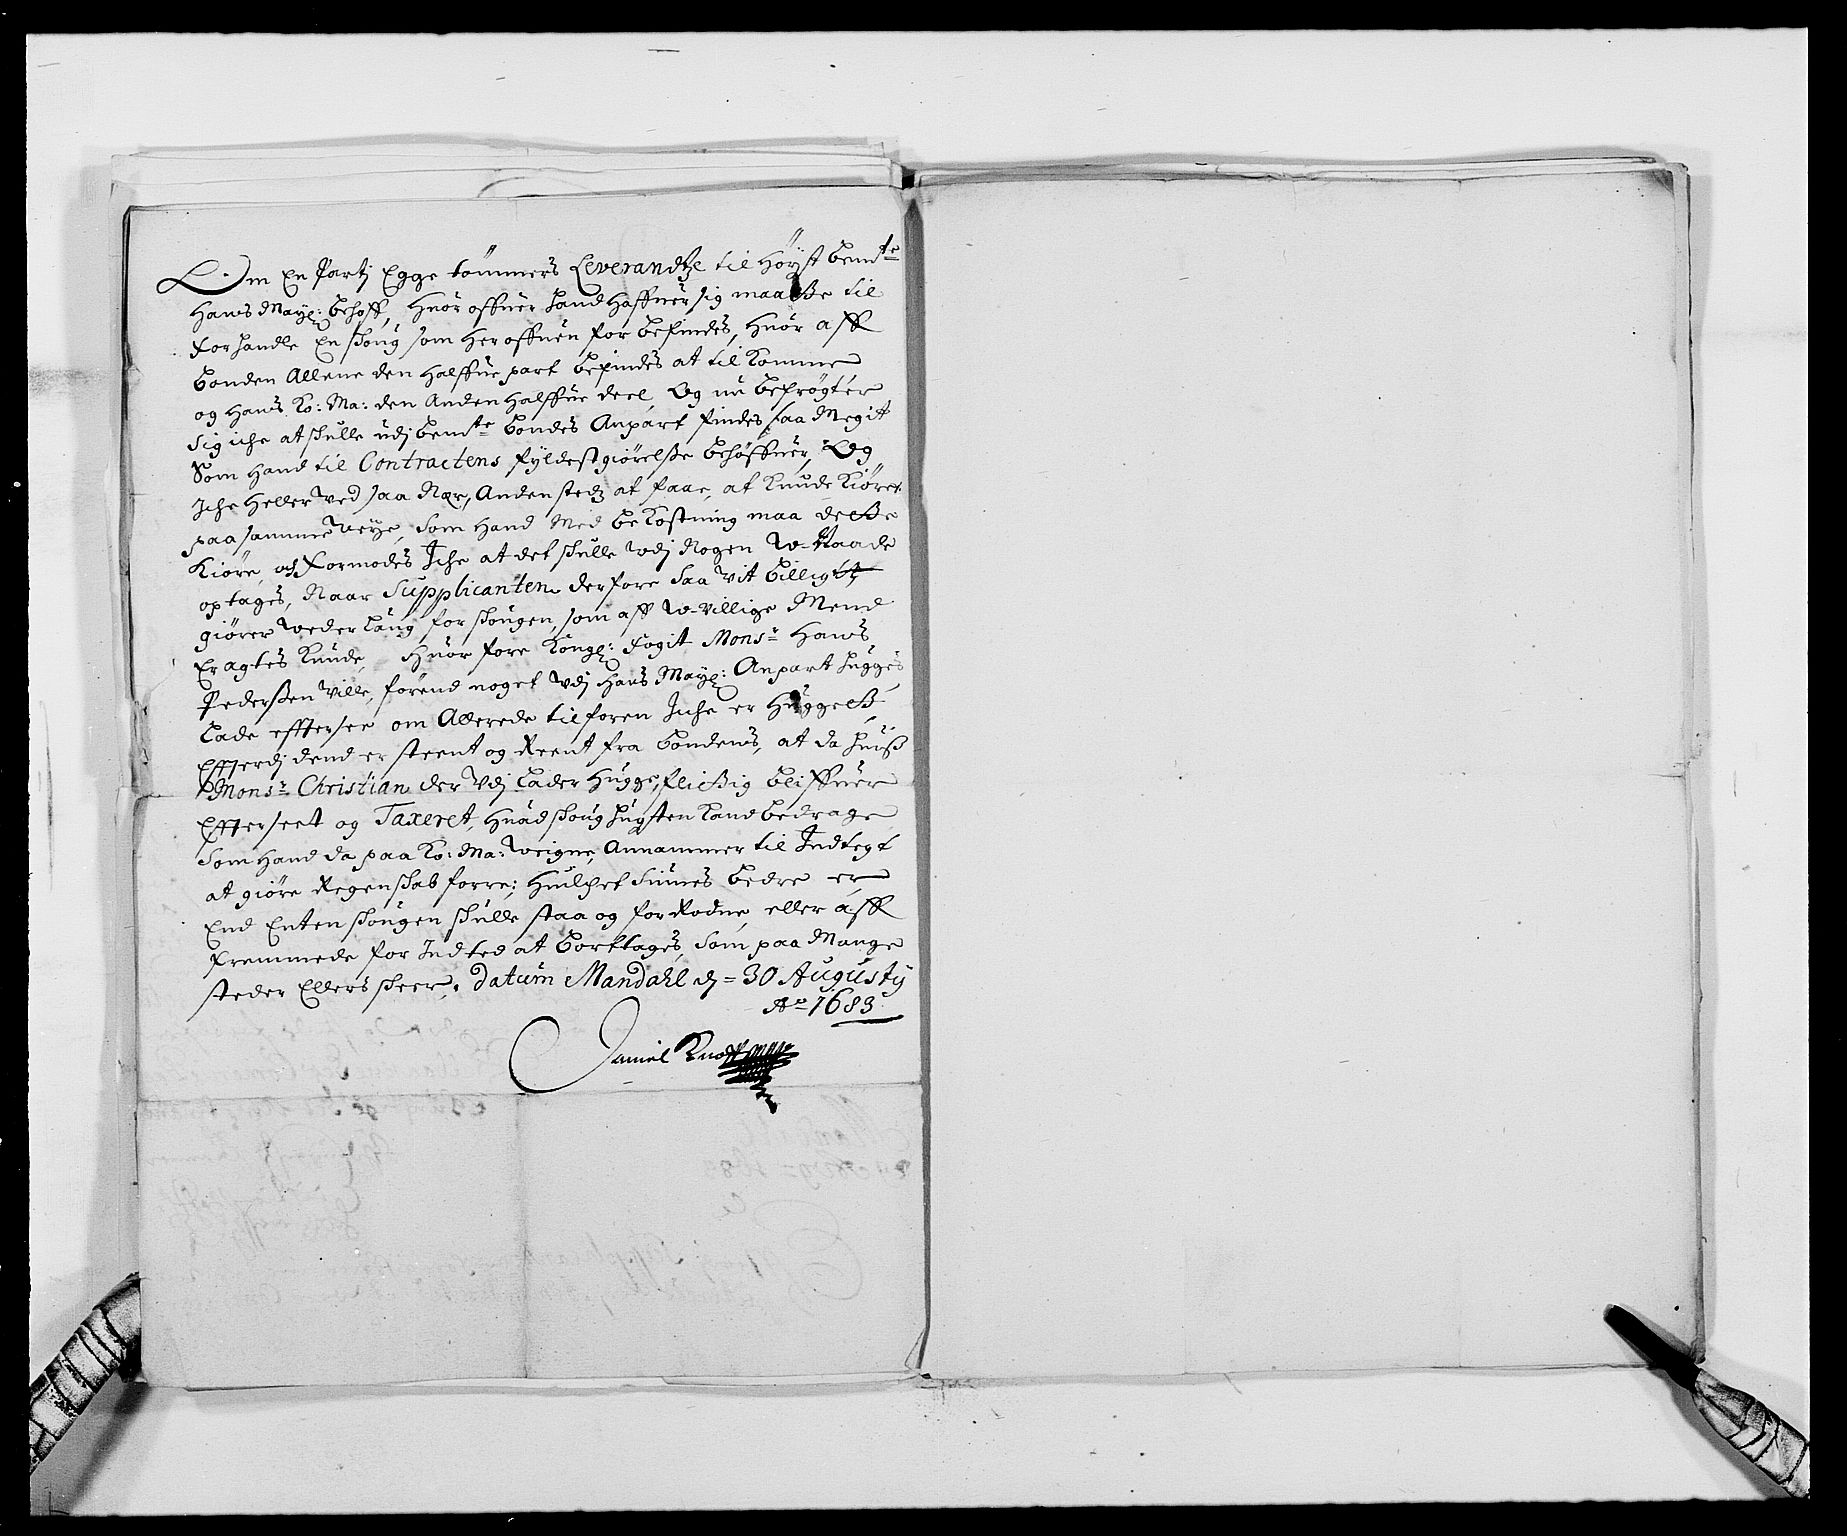 Om En Partj Egge tömmers Leverandtze til Höyst bemte
Hans Mayt: behoff, Huor offuer hand haffuer sig maa ße til
forhandle En skoug som her offuen for befindes, Huor aff
bonden Allene den halffue part befindes at tilkomme
og Hans Ko: Ma: den Anden halffue deel, Og nu befrögter
sig iche at skulle udj bemte bondes Anpart findes saa Megit
Som hand til Contractens fyldestgiörelße behöffuer, Og
Iche heller ved saa Nær, Andensteds at faae, at kunde kiöre
paa samme Veye, Som hand Med bekostning maa deße
kiöre, och formodes Iche at det skulle udj Nogen V-Naade
optages, Naar Supplicanten, derfore saa vit billigt
giörer vederlaug for skougen, som aff V-villige Mend
Eragtes kunde, Huor fore Kongl: fogit Monsr Hans
Pederßen ville,förend noget udj Hans Mayt: Anpart hugges
Lade effterse om Allerede tilforen Iche er huggeß
Effterdj dend er skent og Reent fra bondens, at da huiß
Monsr Christian der udj lader hugge, flißig bliffuer
Effterseet og Taxeret, Huad skoug hugsten kand bedrage
Som hand da paa Ko: Ma: Veigne, Annammer til Indtegt
at giöre Regenskab forre; Huilchet siunes bedre er
End Enten skougen skulle staa og forRodne, eller aff
fremmede for Indted at borttages, Som paa Mange
steder Ellers skeer, Datum Mandahl d = 30 Augustij
Ao 1683
Daniel Knoff